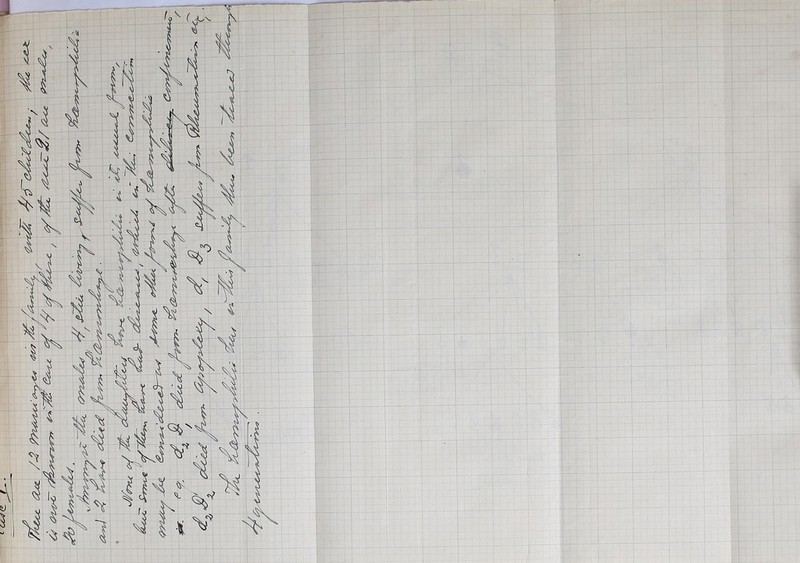 Case 1.
There are 12 marriages in the family, with 45 children; the sex
is not known in the case of 4 of these, of the rest 21 are males,
20 females.
Amongst the males 4, still living, suffer from haemophilia
and 2 have died from haemorrhage.
None of the daughters have haemophilia in its usual form,
but some of them have had diseases, which in this connection
may be considered as some other forms of haemophilia
e.g. d2 D1 died from haemorrhage after delivery confinement,
d2 D2 died from apoplexy, d1 D3 suffers from Rheumatism etc.
The haemophilia has in this family thus been traced through
4 generations.